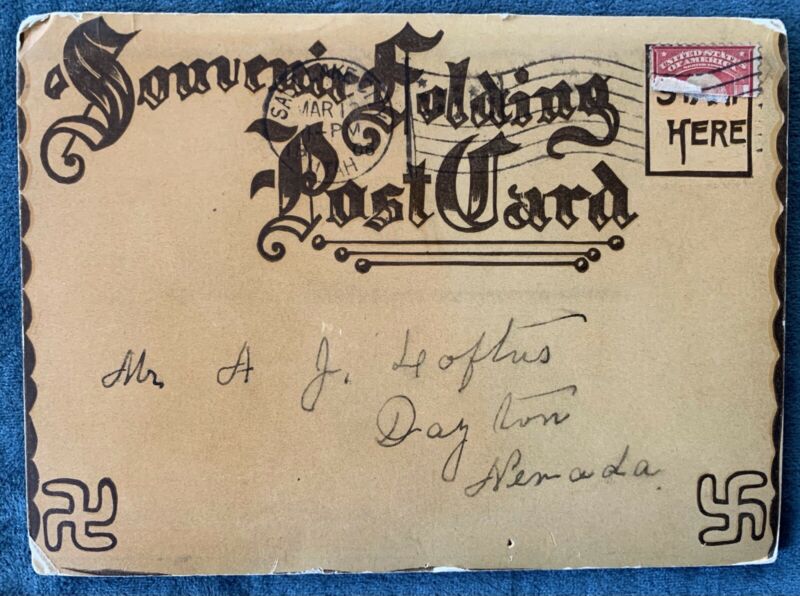 Souvenir Folding
Post Card
SALT LAKE
MAR 1
PM
UTAH
UNITED STATES
OF AMERICA
STAMP
HERE
Mr. A J. Loftus
Dayton
Nevada.